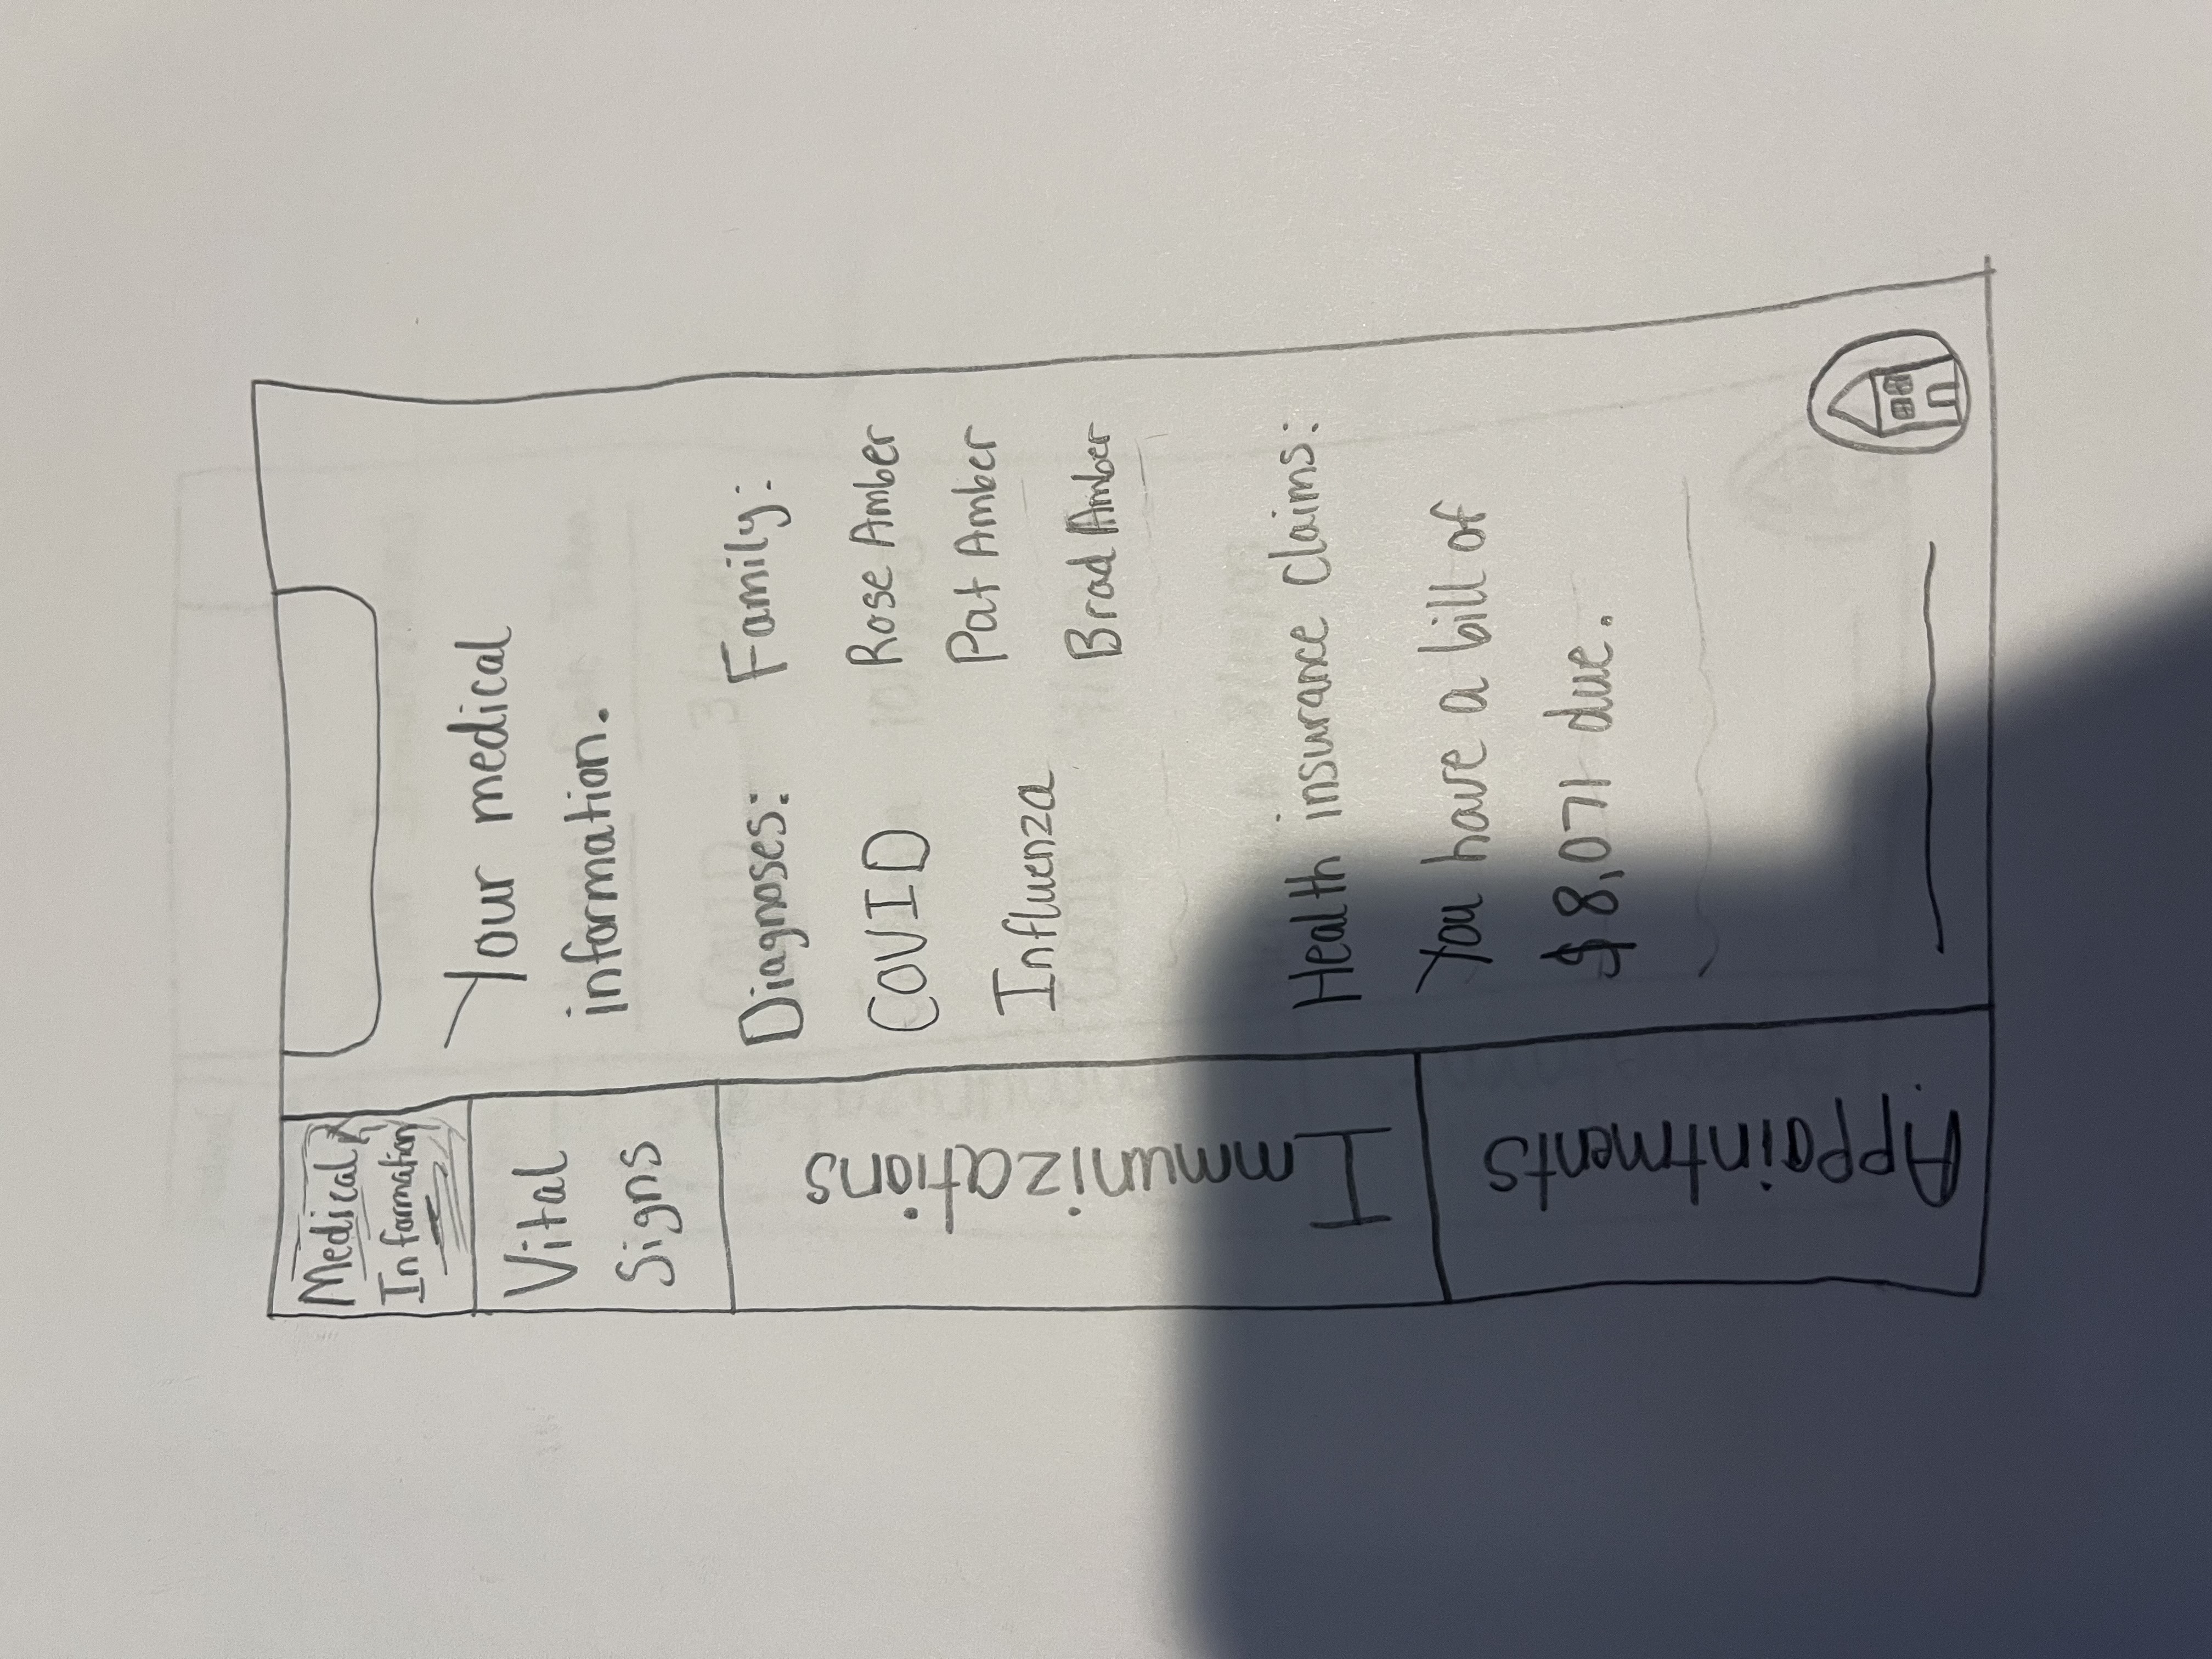 Medical
Information
Vital
Signs
Immunizations
Appointments
Your medical
information.
Diagnoses:
COVID
Influenza
Family:
Rose Amber
Pat Amber
Brad Amber
Health insurance Claims:
You have a bill of
$8,071 due.